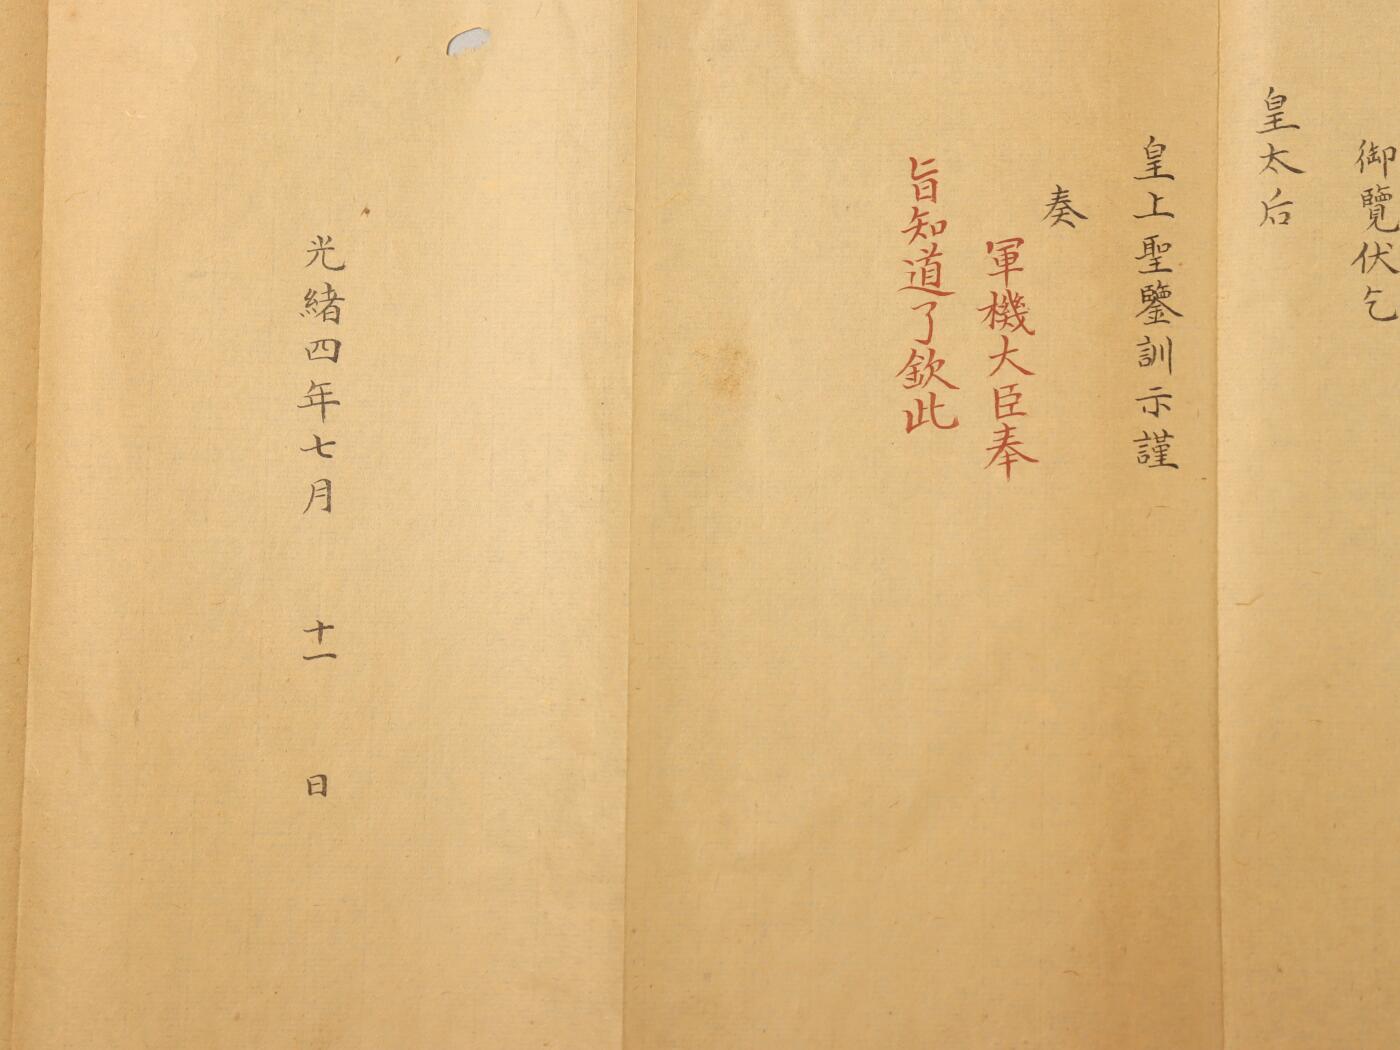 御覽伏乞
皇太后
皇上聖鑒訓示謹
奏
軍機大臣奉
旨知道了欽此
光緒四年七月十一日